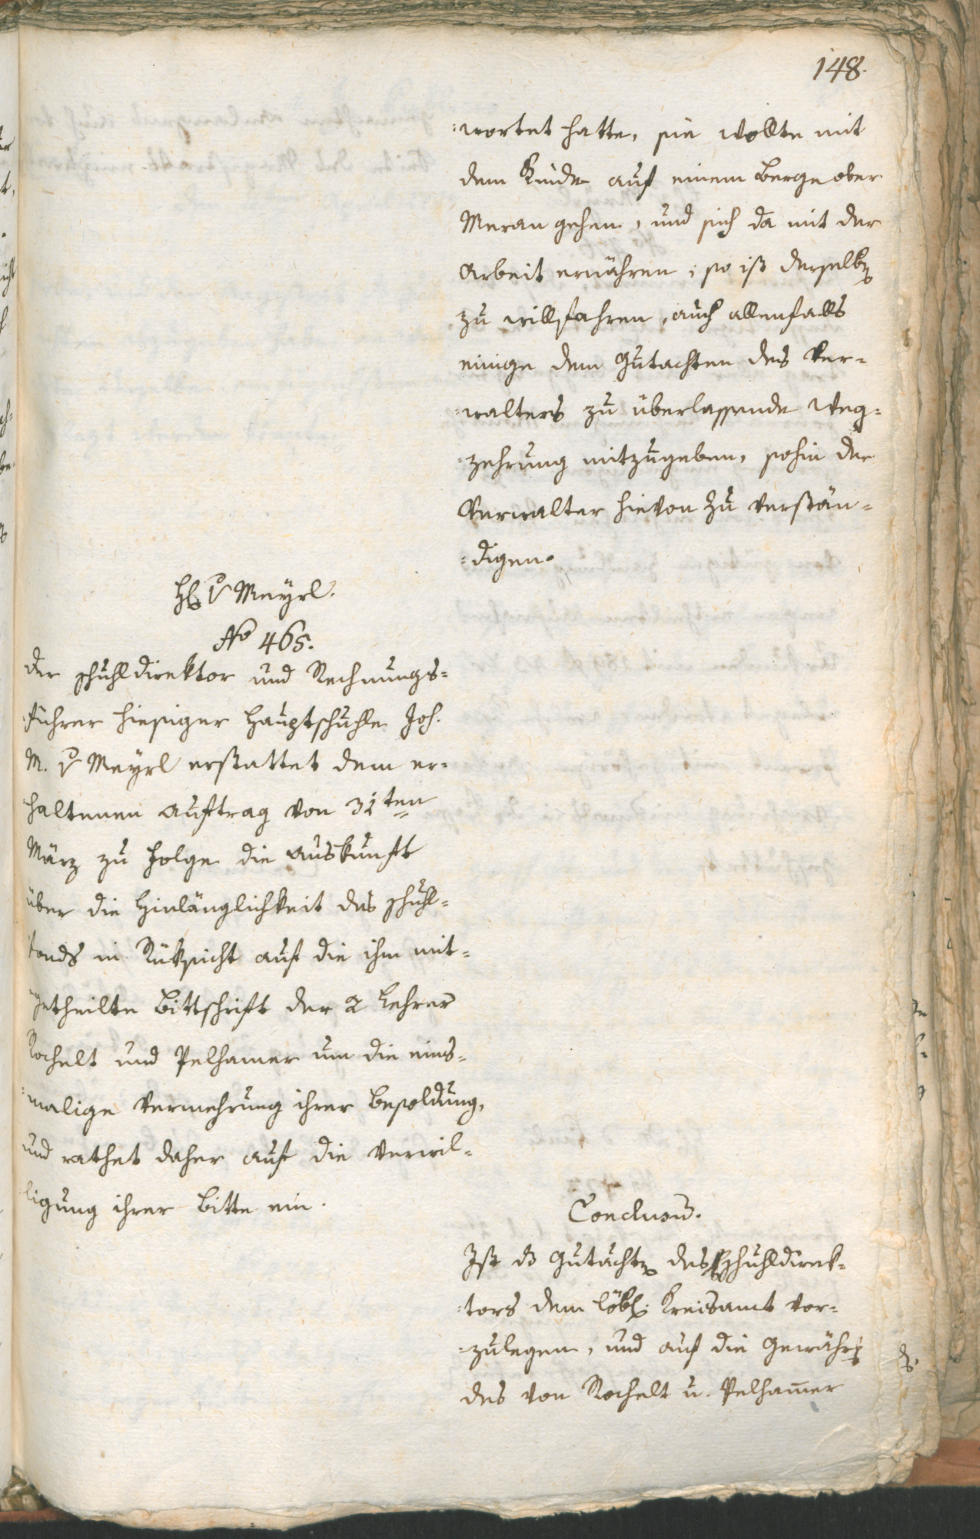 148.
:wortet hatte, sie wollte mit
dem Kinde auf einem Berge ober
Meran gehen, und sich da mit der
Arbeit ernähren; so ist derselben
zu willfahren, auch allenfalls
einige dem Gutachten des Ver=
:walters zu überlassende Weg=
:zehrung mitzugeben, sohin der
Verwalter hievon zu verstän=
:digen.
H: v Meyrl.
No 465.
Der Schuhldirektor und Rechnungs=
:führer hiesiger Hauptschuhle Joh.
M. v Meyrl erstattet dem er=
haltenen Auftrag von 31ten
März zu Folge die Auskunft
über die Hinlänglichkeit des Schuhl=
fonds in Rüksicht auf die ihm mit=
getheilte Bittschrift der 2 Lehrer
Rochelt und Pelhamer um die eins=
:malige Vermehrung ihrer Besoldung,
und rathet daher auf die Verwil=
ligung ihrer Bitte ein.
Conclusum.
Ist das Gutachten des Schuhldirek=
:tors dem löbl: Kreisamt vor=
:zulegen, und auf die Gewährung
des von Rochelt u. Pelham̅er